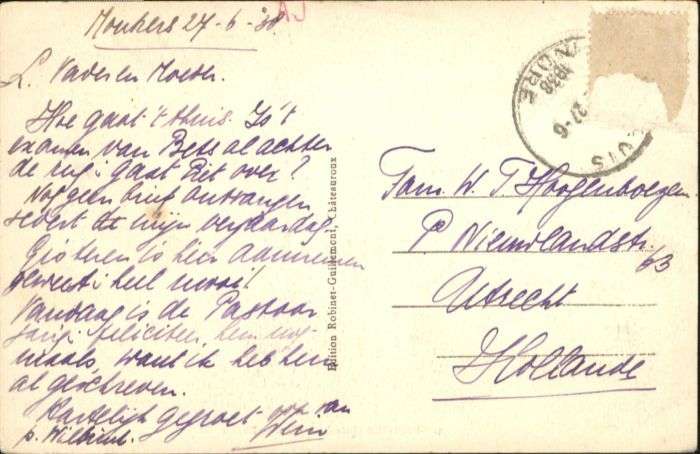 27-6-'38
L. Vader en Moeder.
Hoe gaat 't thuis. Is 't
examen van Bets al achter
de rug; gaat Piet over?
Nog geen brief ontvangen
sedert de mijn verjaardag.
Gisteren is hier
geweest; heel mooi!
Vandaag is de Pastoor
jarig feliciteer hem nog-
maals, want ik heb hem
al geschreven.
Hartelijk gegroet ook van
p. Wilbert. Wim
Edition Robinet-Guillemont, Châteauroux
1938
27-6
Fam. W. T. Hoogenboezem
P. Nieuwlandstr.
63
Utrecht
Hollande